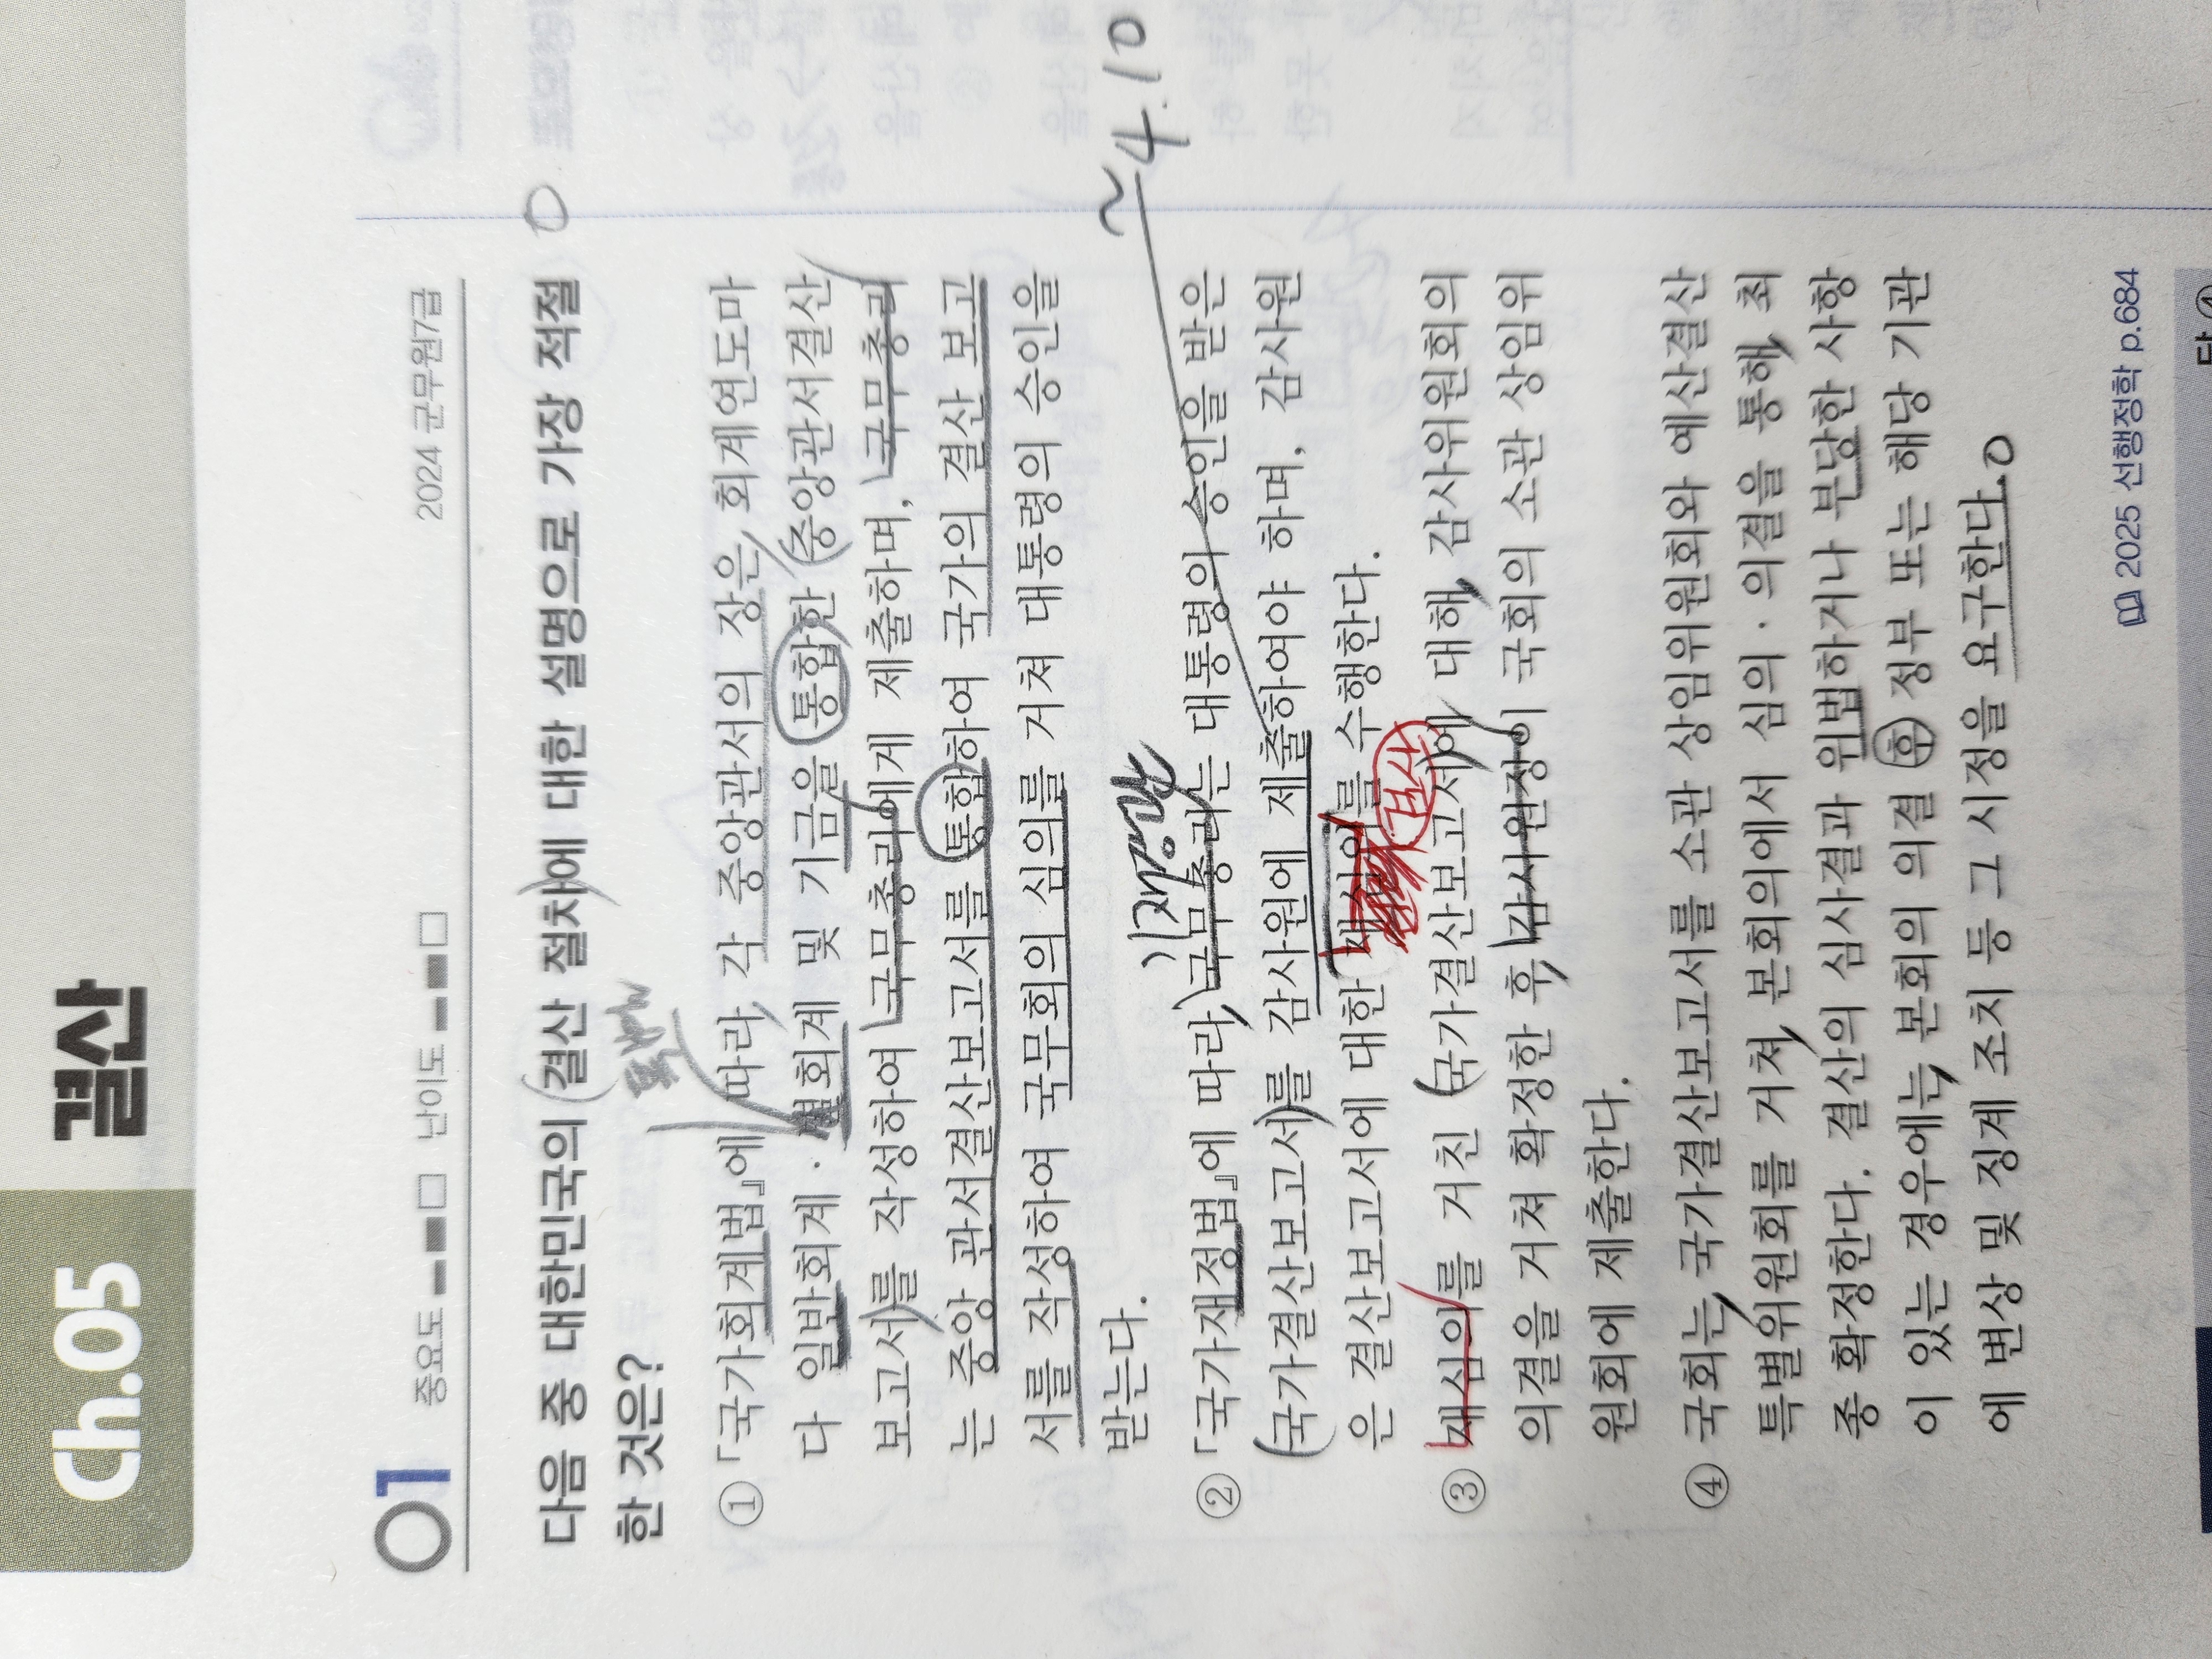 Ch.05 결산
01 중요도 난이도 2024 군무원7급
다음 중 대한민국의 결산 절차에 대한 설명으로 가장 적절
한 것은?
특별
① 「국가회계법」에 따라 각 중앙관서의 장은 회계연도마
다 일반회계·특별회계 및 기금을 통합한 중앙관서결산
보고서를 작성하여 국무총리에게 제출하며, 국무총리
는 중앙 관서결산보고서를 통합하여 국가의 결산 보고
서를 작성하여 국무회의 심의를 거쳐 대통령의 승인을
받는다.
기재장관
~4.10
② 「국가재정법」에 따라 국무총리는 대통령의 승인을 받은
국가결산보고서를 감사원에 제출하여야 하며, 감사원
은 결산보고서에 대한 재심의를 수행한다.
검사
③ 재심의를 거친 국가결산보고서에 대해 감사위원회의
의결을 거쳐 확정한 후 감사원장이 국회의 소관 상임위
원회에 제출한다.
④ 국회는 국가결산보고서를 소관 상임위원회와 예산결산
특별위원회를 거쳐 본회의에서 심의·의결을 통해 최
종 확정한다. 결산의 심사결과 위법하거나 부당한 사항
이 있는 경우에는 본회의 의결 후 정부 또는 해당 기관
에 변상 및 징계 조치 등 그 시정을 요구한다.
2025 선행정학 p.684
답 ④